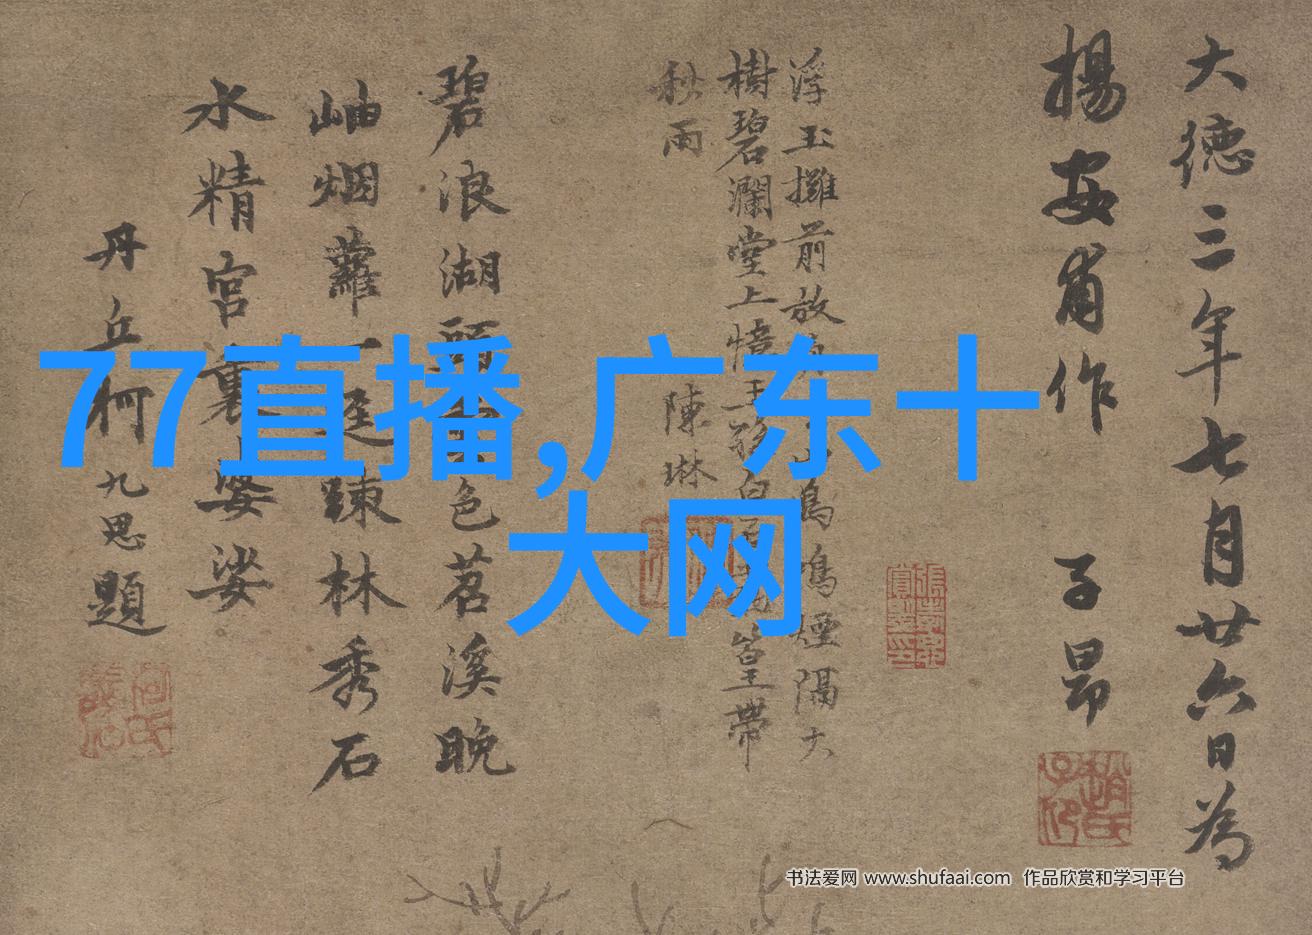 77直播,广东十
大网
大德三年七月廿六日為
揚安甫作 子昂
趙氏子昂
浮玉攤前放 煙隔大
樹碧瀾堂上憶王 篁帶
秋雨 陳琳
碧浪湖頭 色苕溪晚
岫烟蘿一逕踈林秀石
水精宮裏婆娑
丹丘柯九思題
书法爱网 www.shufaai.com 作品欣赏和学习平台